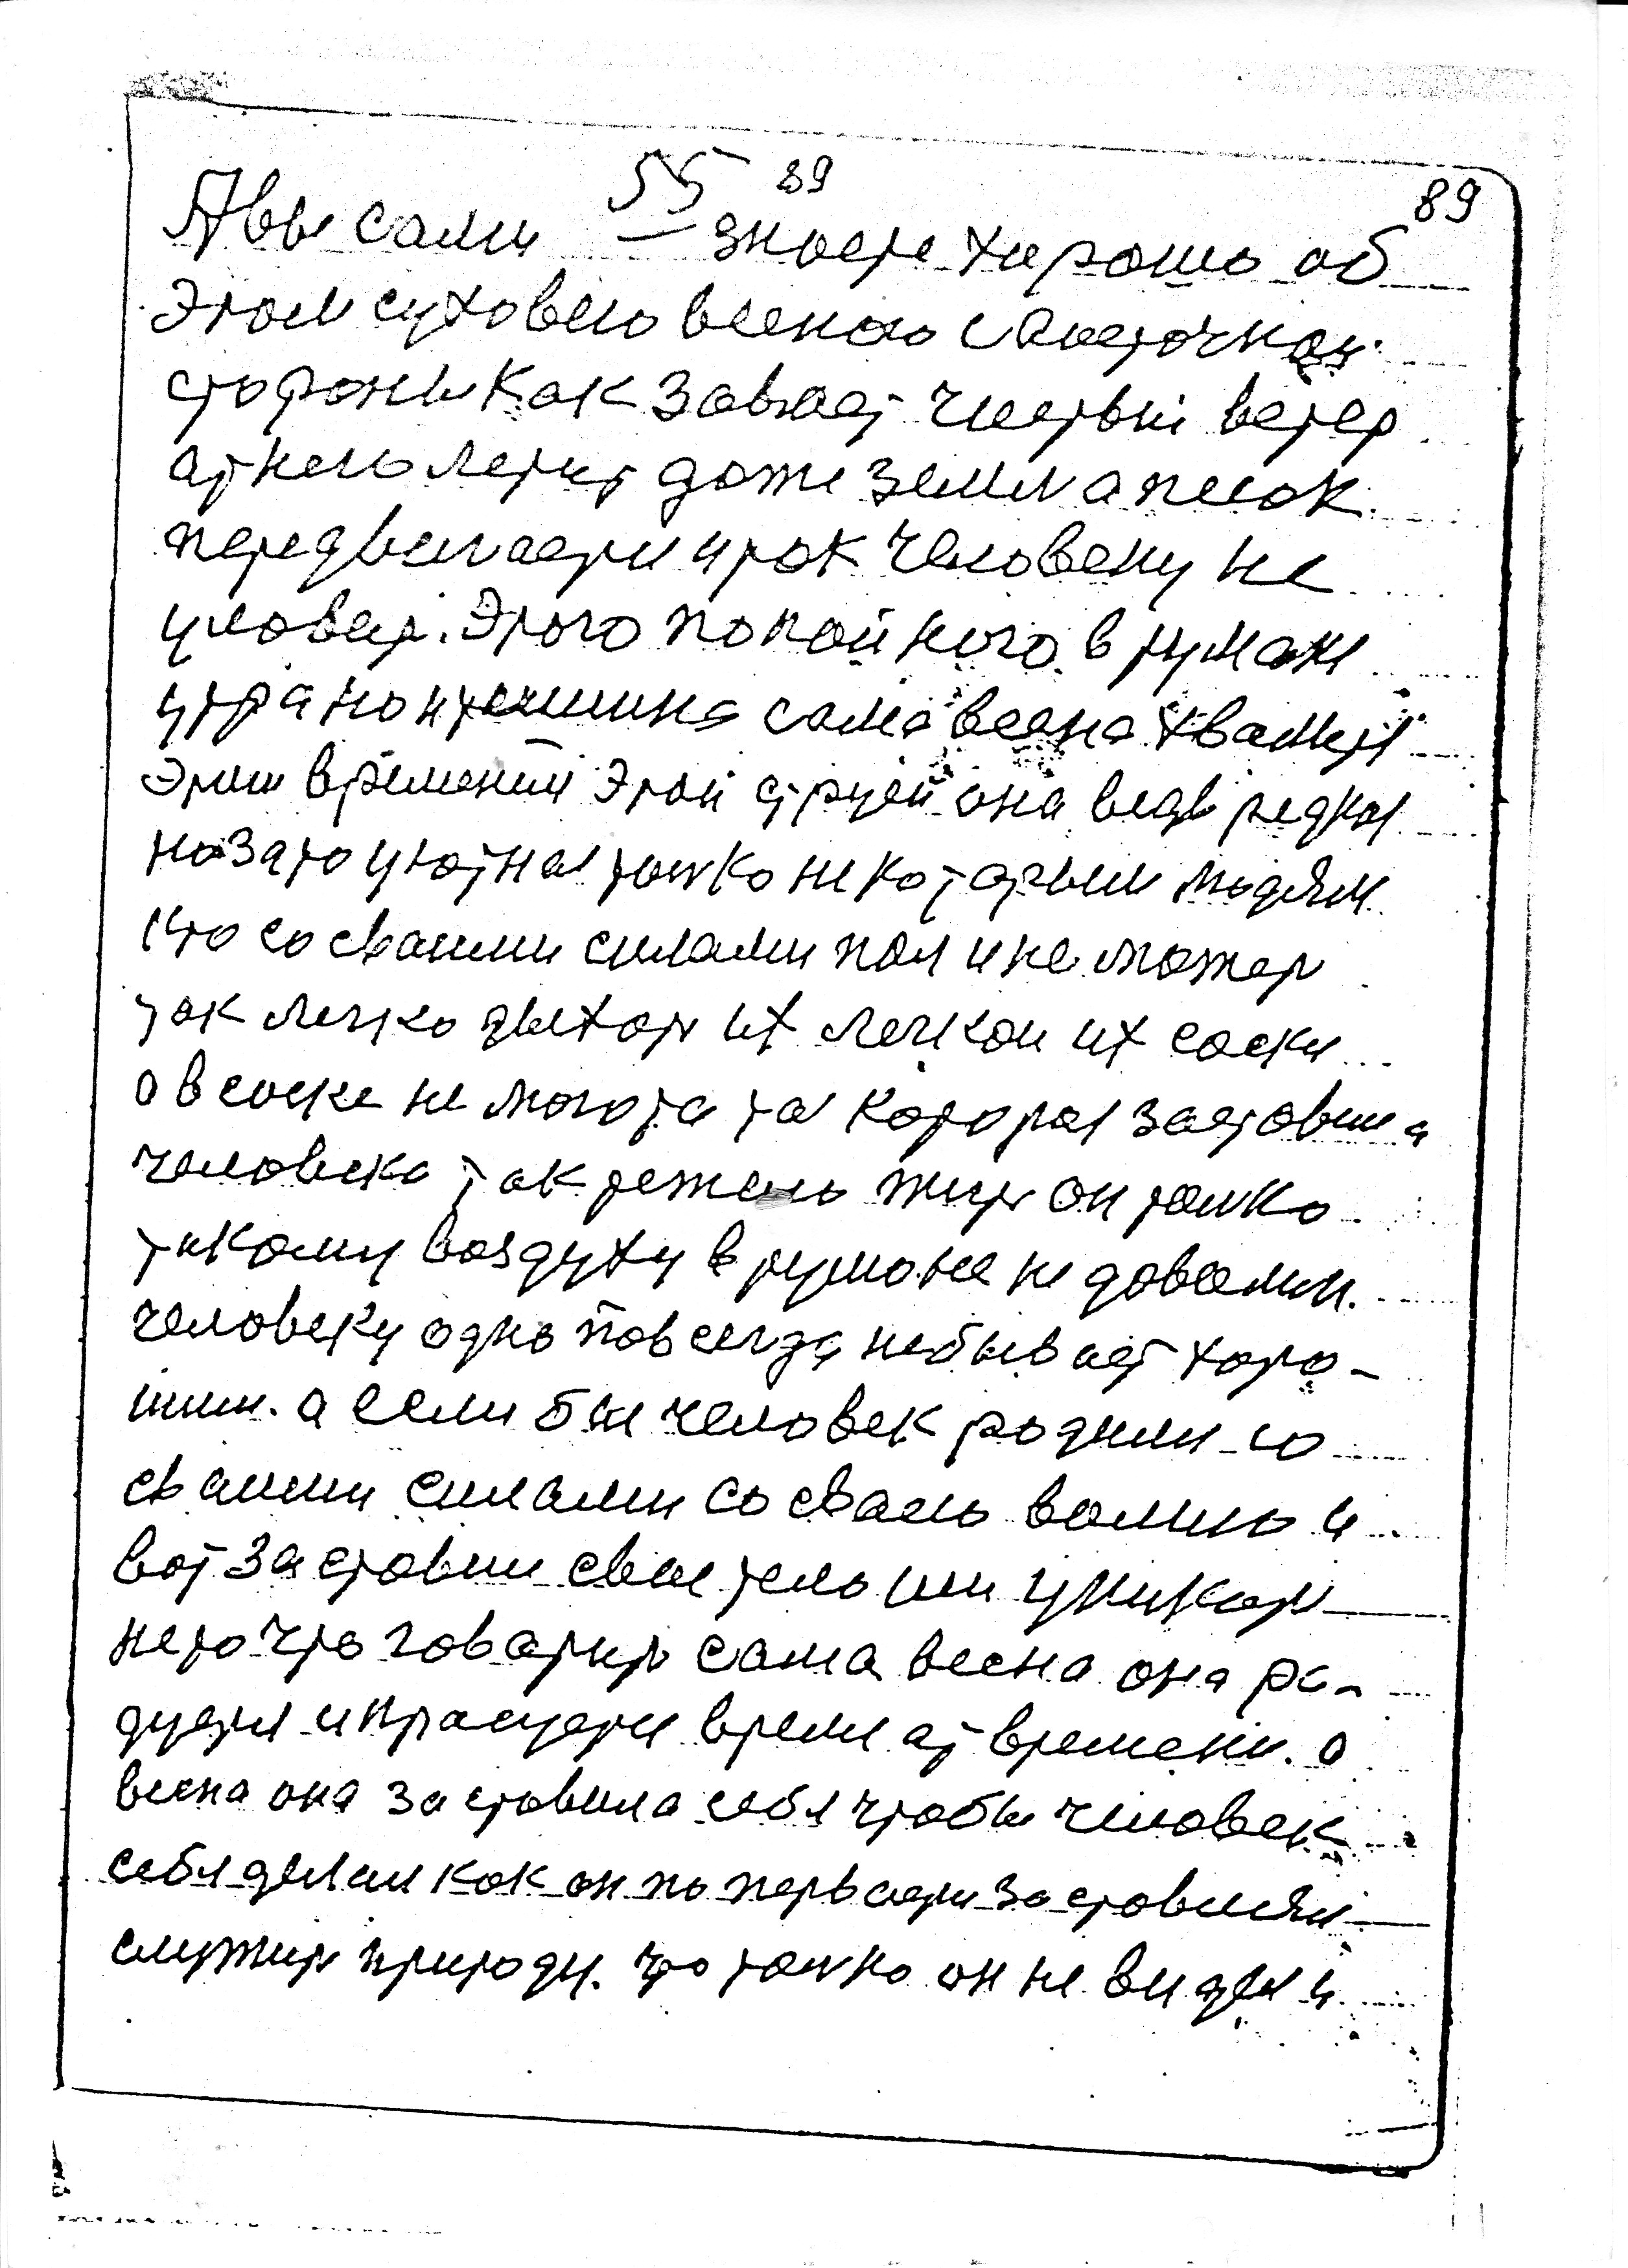 55 89
89
А вы сами знаете хорошо об
этом суховею весною с Восточной
стороны как завает чистый ветер
от нею летит даже земля песок
передвигаети и так человеку не
уловет. Этого покойного в тумане
утра но и тешина сама весна хвалитя
этим времений этой струей она ведь редкая
но зато уютная толко некоторым людям
что со своими силами пол и не может
так легко дыхат их легкои их соски
а в соске не могота та которая заставила
человека так режено жит он толко
такому воздуху в тумане не доволин.
человеку одно повсегда небывает хоро-
шим. а если бы человек родили со
своими силами со своею волию и
вот заставили свае тело им уникат
не то что говорит сама весна она ра-
дуетя и красуети время от времени. а
весна она заставила себя чтобы человек
себя делал как он по перваети заставлял
служит природи. что толко он не видел и